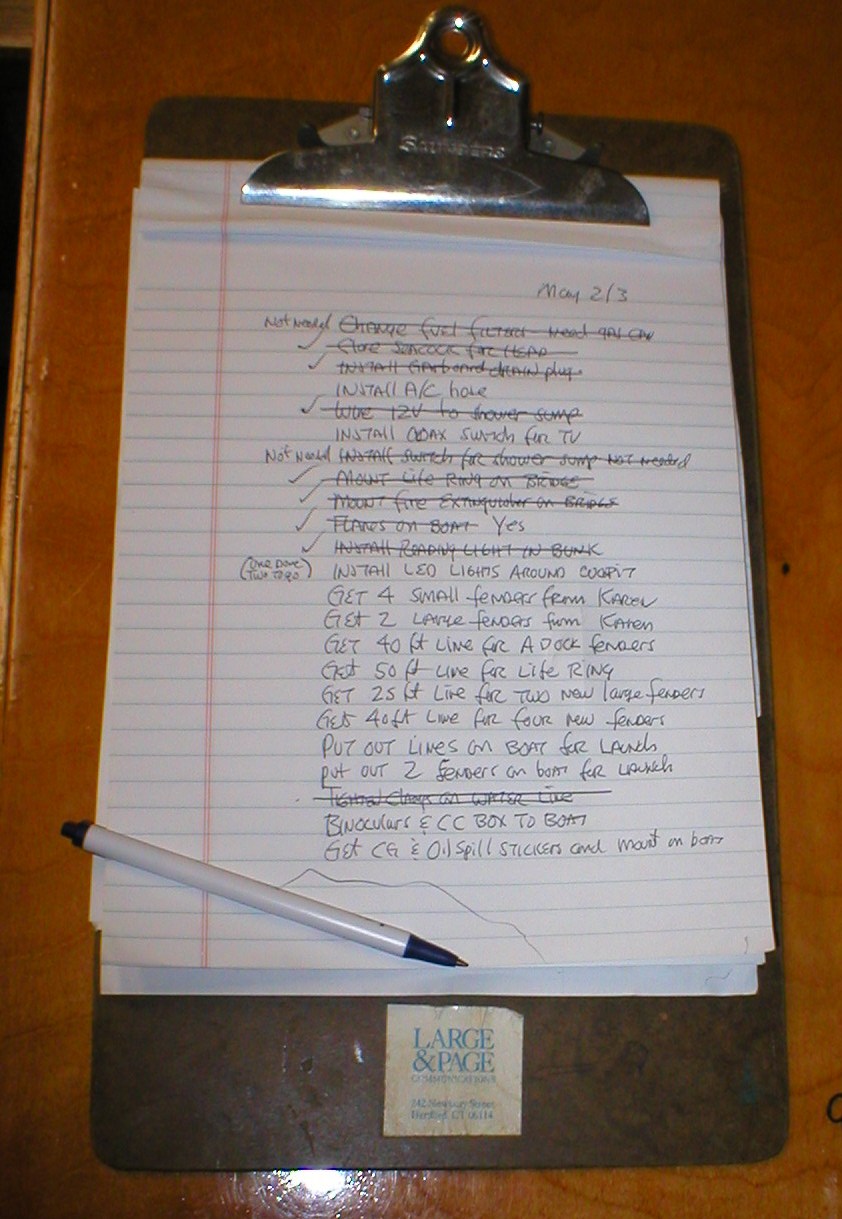 May 2/3
Not Needed Change fuel filters - Need gal can
Close Seacock for HEAD
INSTALL Garboard drain plug
INSTALL A/C hose
Wire 12V to shower sump
INSTALL COAX switch for TV
Not Needed INSTALL switch for shower sump NOT Needed
MOUNT Life RING on BRIDGE
MOUNT fire Extinguisher on BRIDGE
FLARES on BOAT Yes
INSTALL READING LIGHT IN BUNK
(One Done Two to go) INSTALL LED LIGHTS AROUND COCKPIT
GET 4 SMALL fenders from KAREN
GET 2 LARGE fenders from KAREN
GET 40 ft LINE for A DOCK fenders
GET 50 ft LINE for Life RING
GET 25 ft LINE for TWO NEW large fenders
GET 40 ft LINE for four new fenders
PUT OUT LINES on BOAT for LAUNCH
put OUT 2 fenders on boat for LAUNCH
Tighten Clamps on WATER Line
BINOCULARS & CC BOX TO BOAT
Get CG & Oil Spill STICKERS and mount on boat
LARGE
&PAGE
COMMUNICATIONS
Hartford, CT 06114